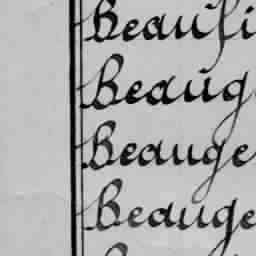 Beaufi
Beaug
Beauge
Beauge